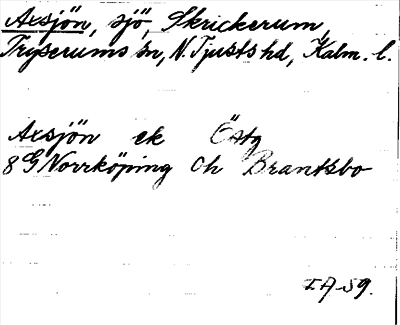 Axsjön, sjö, Skrickerum,
Tryserums sn, N. Tjusts hd, Kalm. l.
Axsjön ek Östg
8G Norrköping Oh Brantsbo
I.A-59.